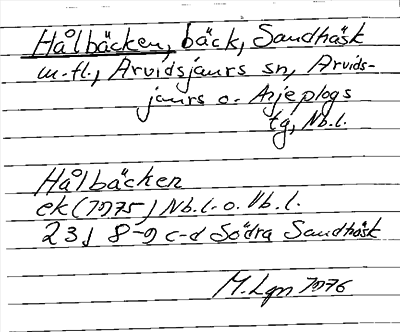 Hålbäcken, bäck, Sandträsk
m.fl., Arvidsjaurs sn, Arvids-
jaurs o. Arjeplogs
tg, Nb.l.
Hålbäcken
ek (1975) Nb.l. o. Vb.l.
23J 8-9 c-d Södra Sandträsk
M. Lgn 1976